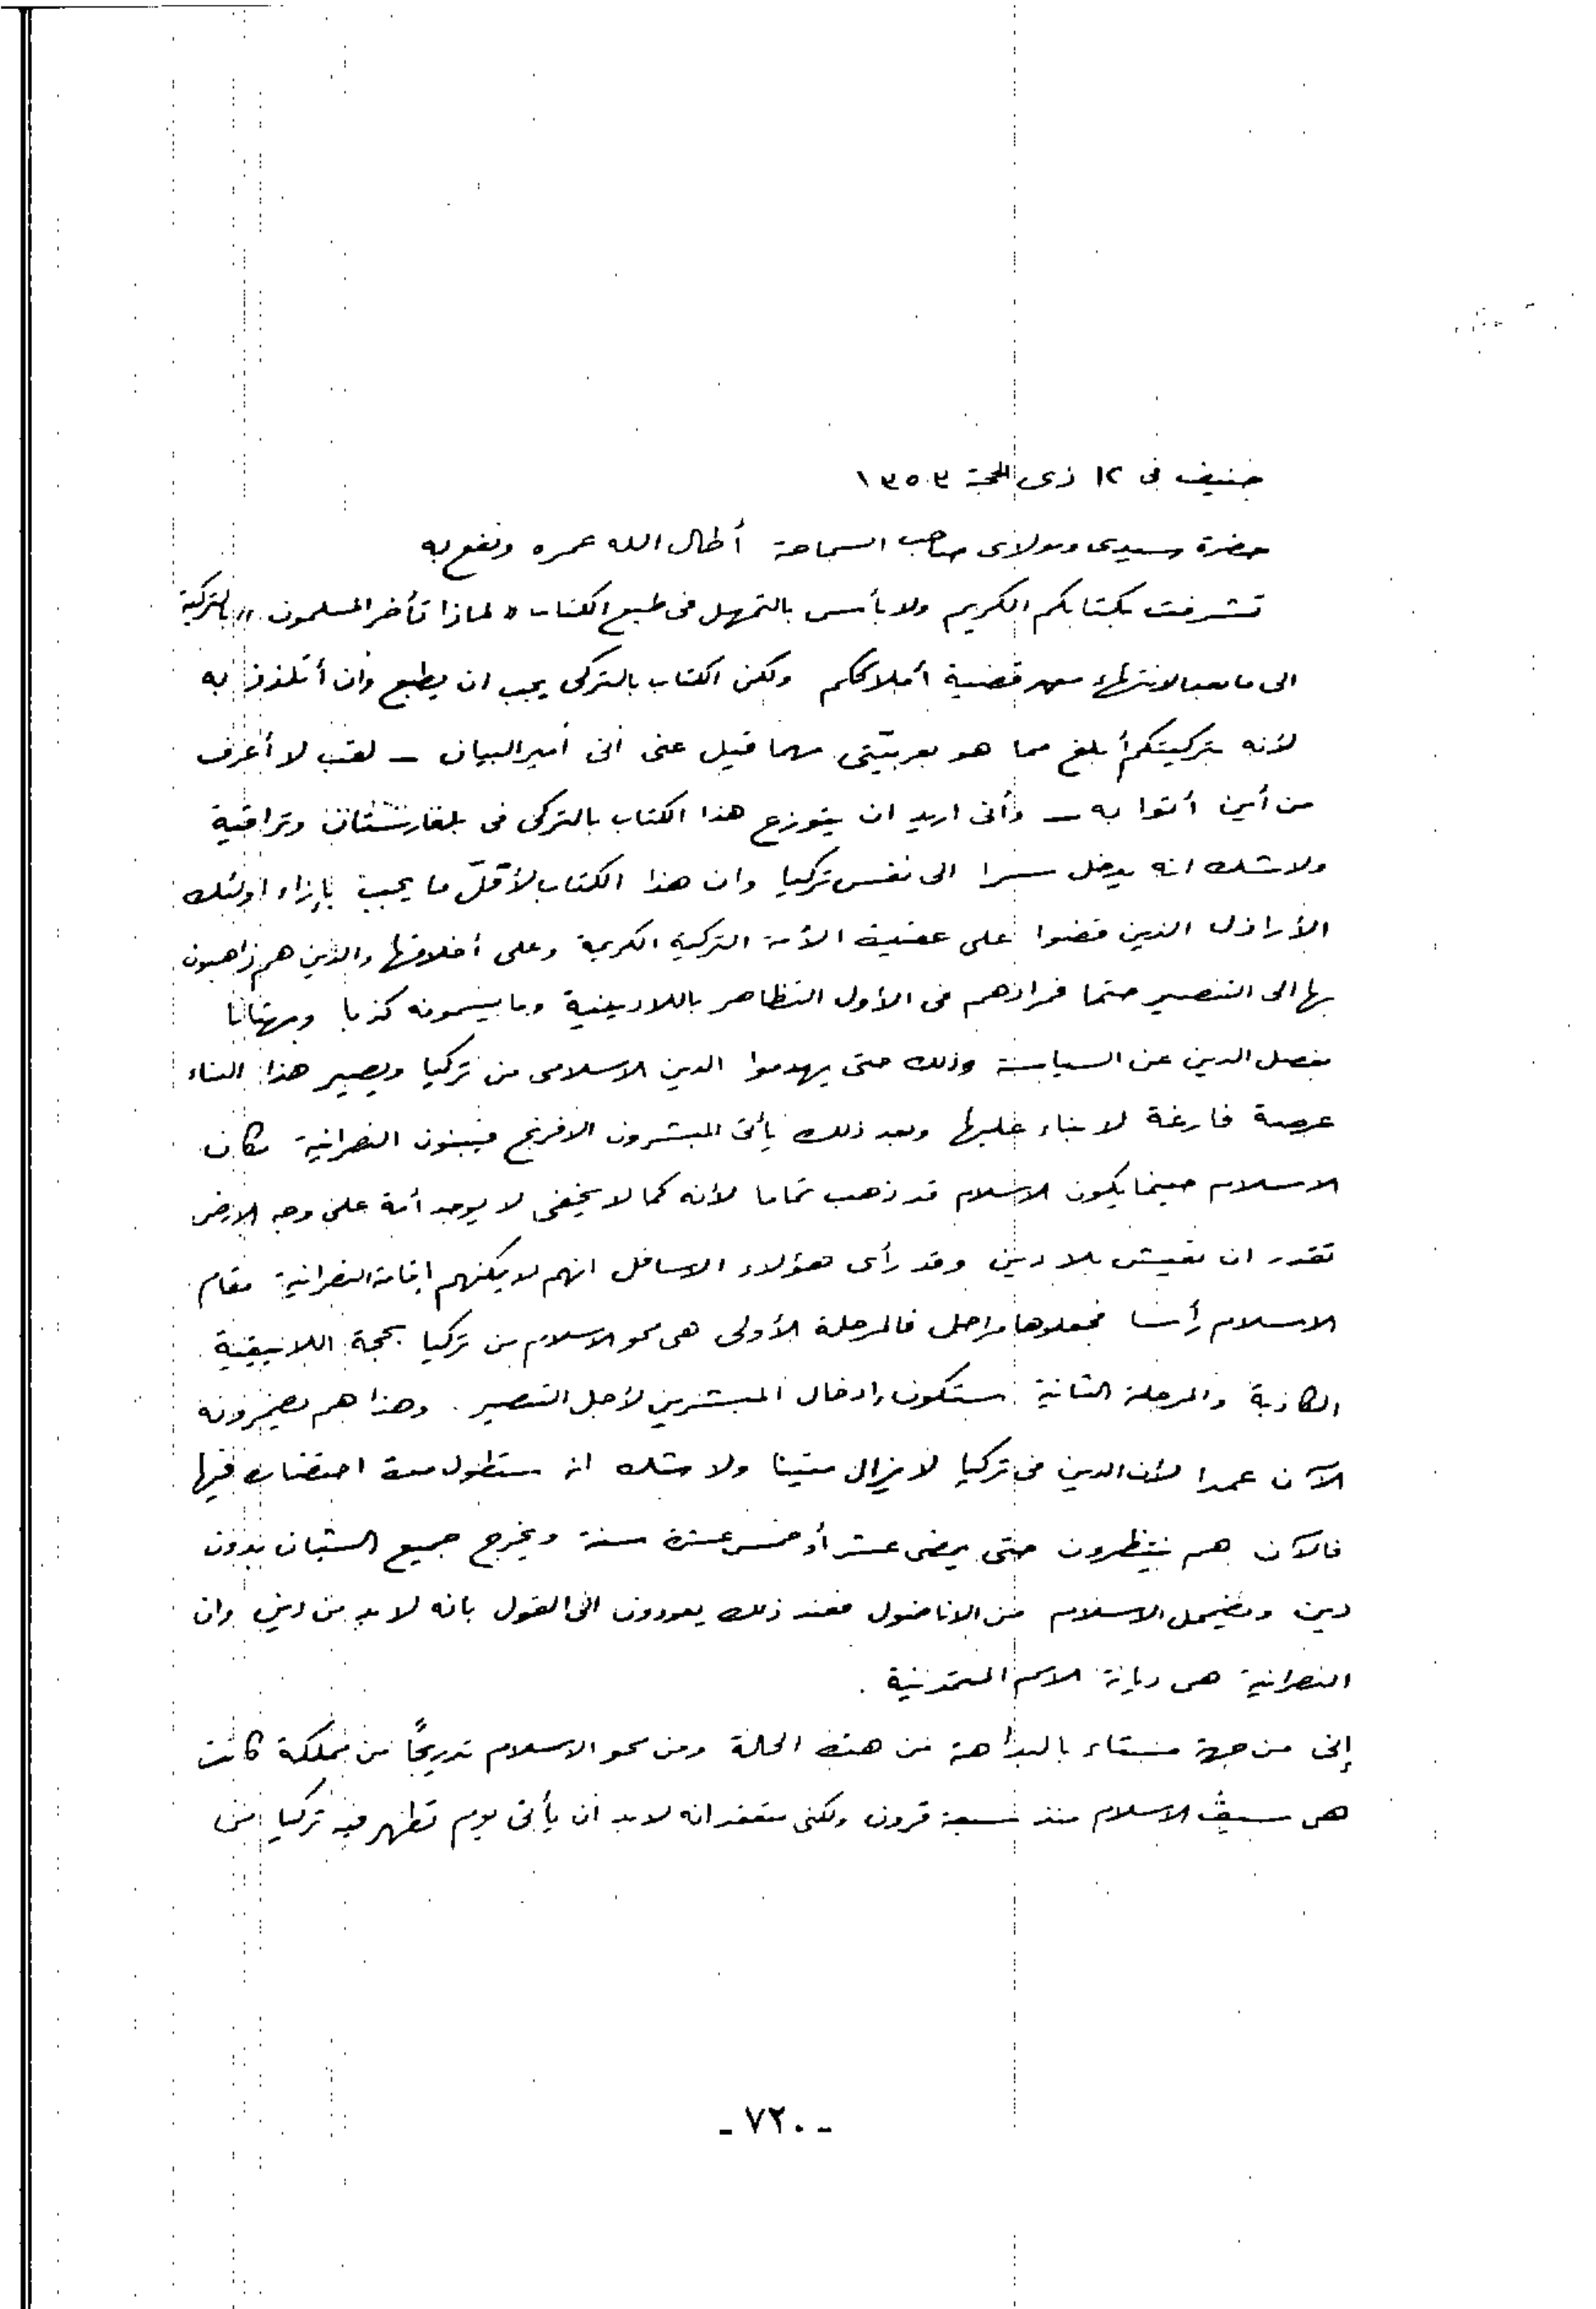 جنيف فى ١٢ ذى الحجة ١٣٥٣
حضرة سيدى ومولاى صاحب السماحة أطال الله عمره ونفع به
تشرفت بكتابكم الكريم ولا بأس بالتمهل فى طبع الكتاب « لماذا تأخر المسلمون » بالتركية
الى ما بعد الانتهاء من قضية أملاككم ولكن الكتاب بالتركى يجب ان يطبع وان أتلذذ به
لأنه بتركيتكم أبلغ مما هو بعربيّتى مهما قيل عنى انى أمير البيان ـ لقب لا أعرف
من أين أتوا به ـ وأنى اريد ان يتوزع هذا الكتاب بالتركى فى بلغارستان وتراقية
ولا شك انه يدخل سرا الى نفس تركيا وان هذا الكتاب لأقلّ ما يجب بإزاء اولئك
الأراذل الذين قضوا على عقيدة الأمة التركية الكريمة وعلى أخلاقها والذين هم ذاهبون
بها الى التنصير حتما فمرادهم فى الأول التظاهر باللادينية وما يسمونه كذبا وبهتانا
بفصل الدين عن السياسة وذلك حتى يهدموا الدين الاسلامى من تركيا ويصير هذا البناء
عرصة فارغة لا بناء عليها وبعد ذلك يأتى المبشرون الافرنج فيبنون النصرانية مكان
الاسلام حينما يكون الاسلام قد ذهب تماما لأنه كما لا يخفى لا يوجد أمة على وجه الارض
تقدر ان تعيش بلا دين وقد رأى هؤلاء الاسافل انهم لا يمكنهم اقامة النصرانية مقام
الاسلام رأسا فجعلوها مراحل فالمرحلة الأولى هى محو الاسلام من تركيا بحجة اللاييقية
الكاذبة والمرحلة الثانية ستكون ادخال المبشرين لأجل التنصير . وهذا هم يضمرونه
الآن عمدا لأن الدين فى تركيا لا يزال متينا ولا شك انه ستطول مدة احتضاره فيها
فالآن هم ينتظرون حتى يمضى عشر أو خمس عشرة سنة ويخرج جميع الشبان بدون
دين ويضمحل الاسلام من الاناضول فعند ذلك يعودون الى القول بانه لا بد من دين وان
النصرانية هى ديانة الامم المتمدنية .
إنى من جهة مستاء بالبداهة من هذه الحالة ومن محو الاسلام تدريجًا من مملكة كانت
هى سيف الاسلام منذ سبعة قرون ولكنى معتقد انه لا بد ان يأتى يوم تطهر فيه تركيا من
ـ ٧٢٠ ـ